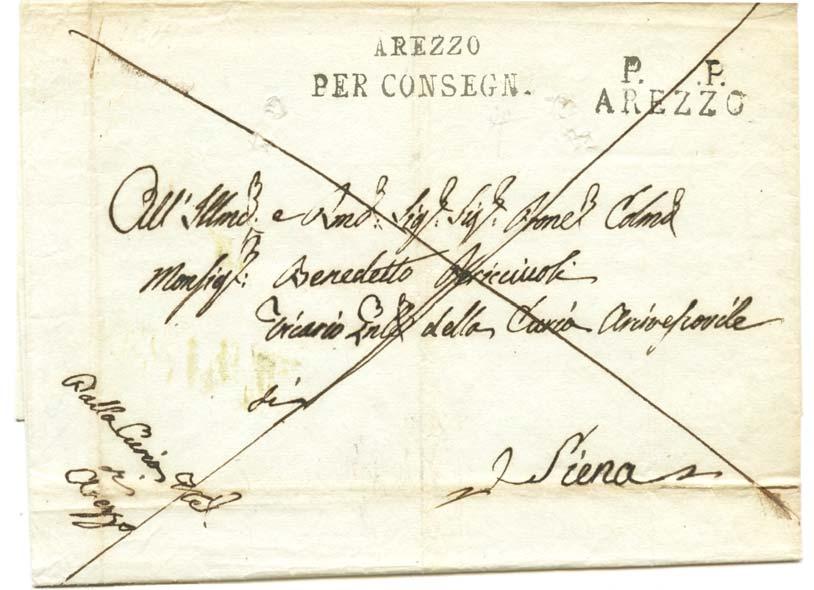 AREZZO
PER CONSEGN.
P. .P.
AREZZO
All' Illmo: e Rmo: Sigr: Sigr: Prone Colmo
Monsigr: Benedetto
Vicario Gnle della Curia Arcivescovile
di
Siena
Dalla Curia Vescl.
di
Arezzo